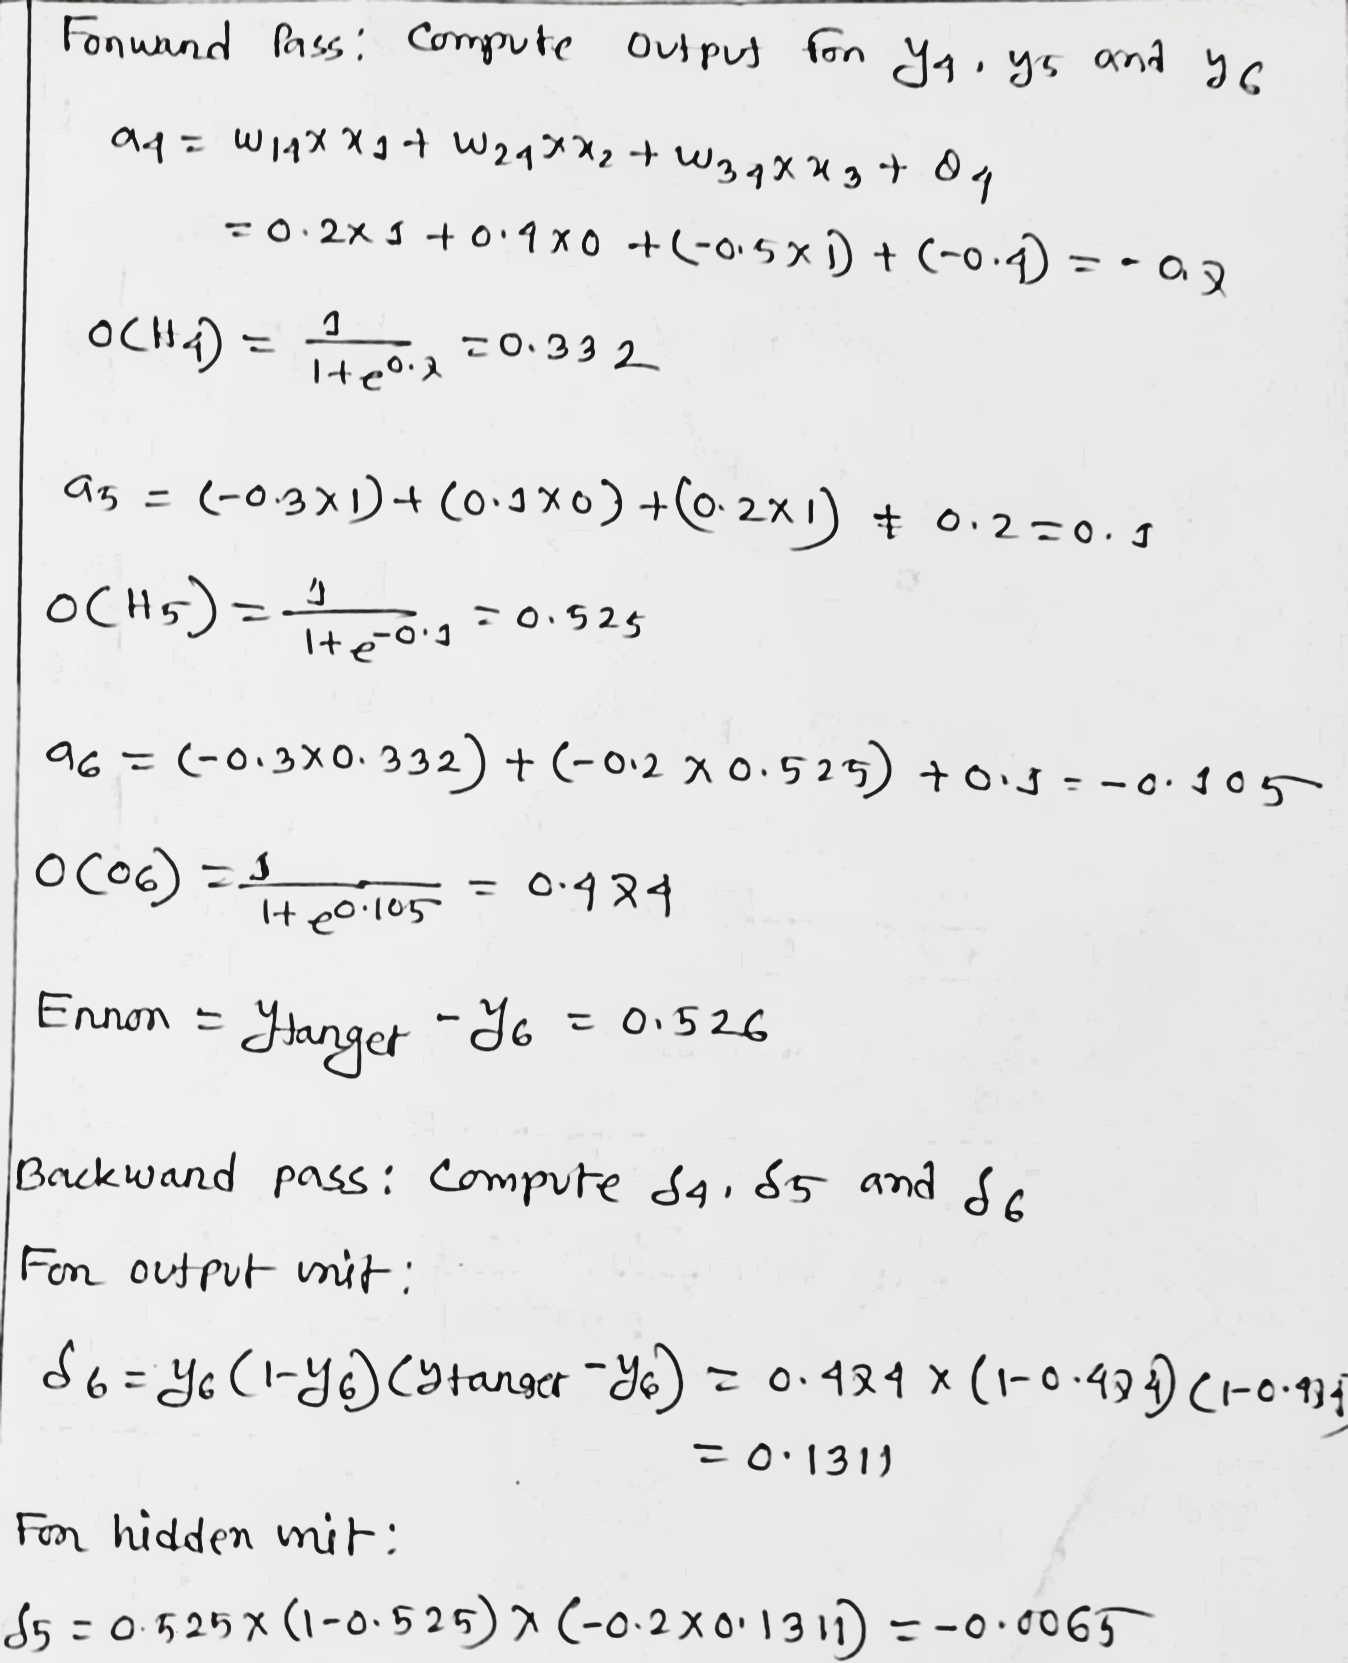 Forward Pass: Compute output for y4, y5 and y6
a4 = w14 x x1 + w24 x x2 + w34 x x3 + θ4
= 0.2 x 1 + 0.4 x 0 + (-0.5 x 1) + (-0.4) = -0.7
O(H4) = 1 / 1+e^0.7 = 0.332
a5 = (-0.3 x 1) + (0.1 x 0) + (0.2 x 1) + 0.2 = 0.1
O(H5) = 1 / 1+e^-0.1 = 0.525
a6 = (-0.3 x 0.332) + (-0.2 x 0.525) + 0.1 = -0.105
O(O6) = 1 / 1+e^0.105 = 0.474
Error = ytarget - y6 = 0.526
Backward pass: Compute δ4, δ5 and δ6
For output unit:
δ6 = y6 (1-y6) (ytarget - y6) = 0.474 x (1-0.474) (1-0.474
= 0.1311
For hidden unit:
δ5 = 0.525 x (1-0.525) x (-0.2 x 0.1311) = -0.0065